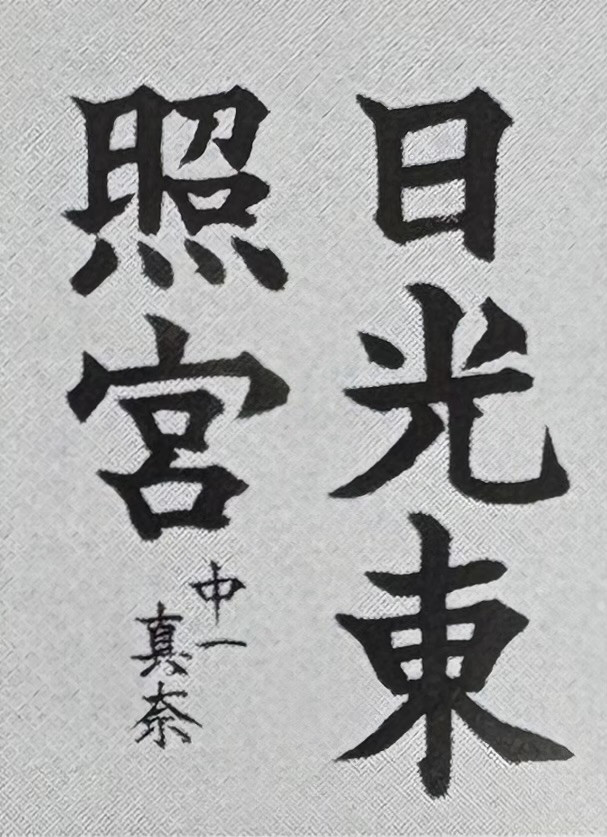 日光東
照宮
中一
真奈